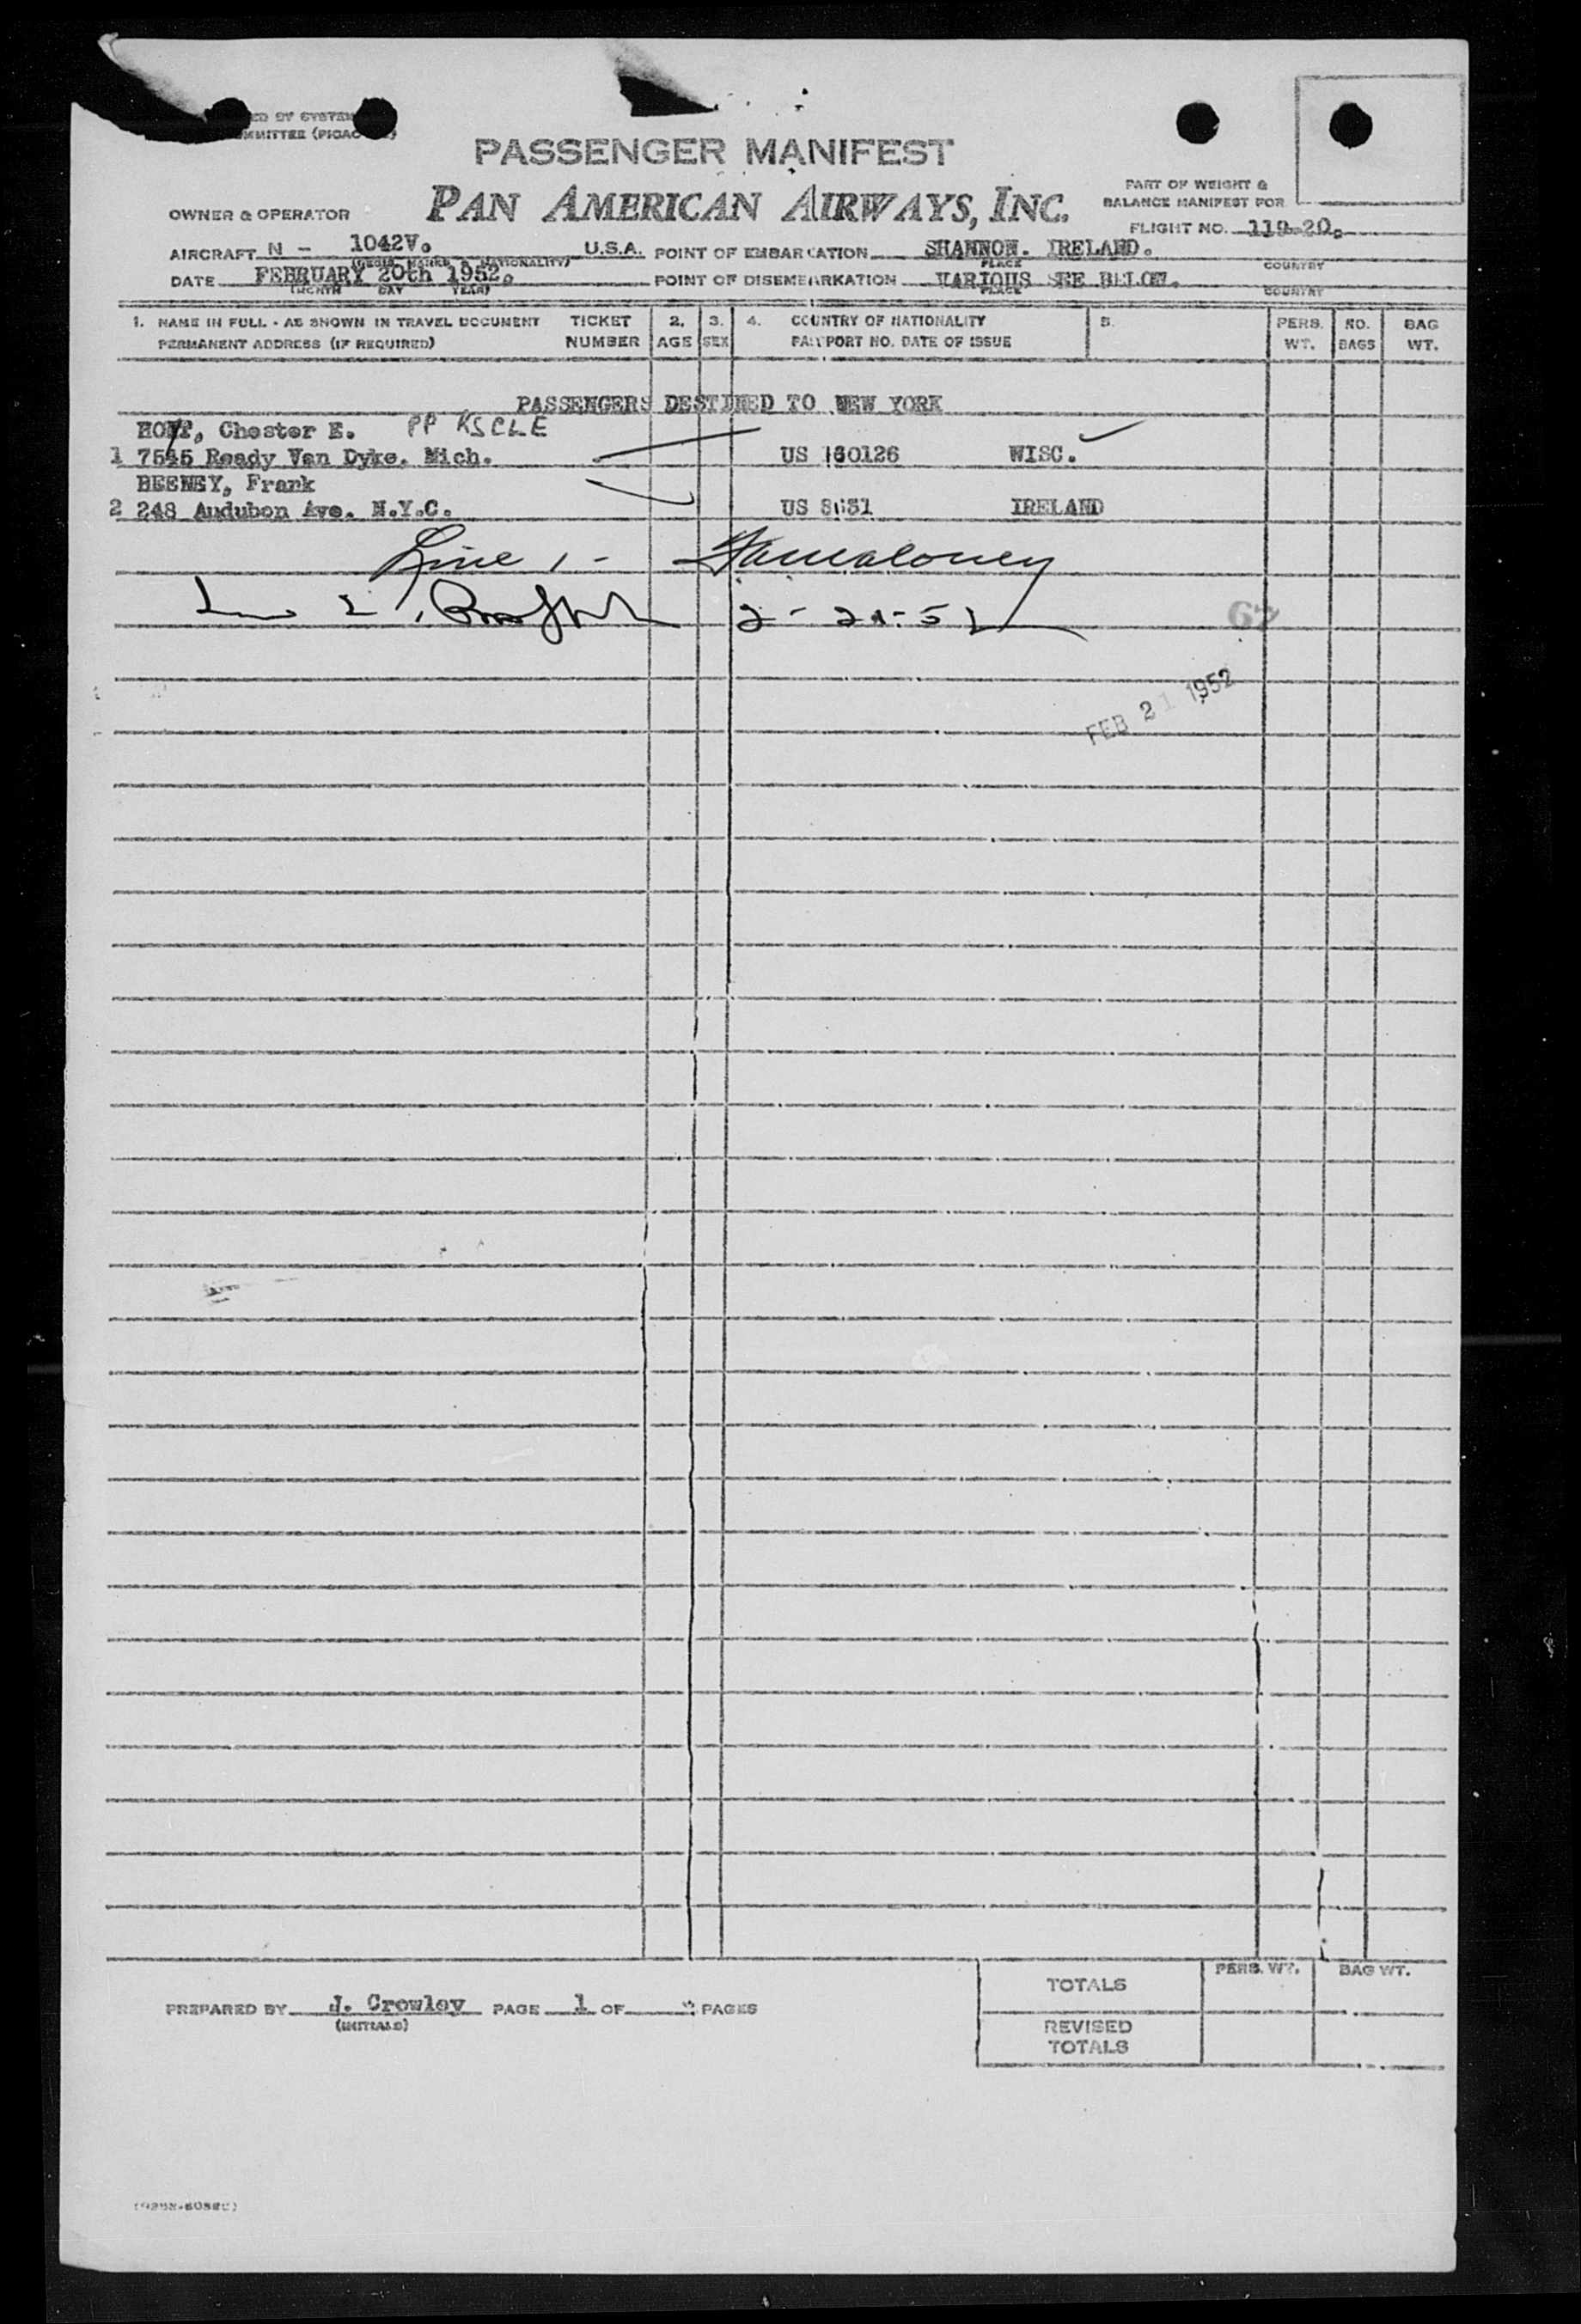 ED BY SYSTEM
MMITTEE (PICAO
PASSENGER MANIFEST
PAN AMERICAN AIRWAYS, INC.
PART OF WEIGHT &
BALANCE MANIFEST FOR
OWNER & OPERATOR
FLIGHT NO. 119-20.
AIRCRAFT N - 1042V. U.S.A. POINT OF EMBARCATION SHANNON. IRELAND.
(REGIS. MARKS & NATIONALITY) PLACE COUNTRY
DATE FEBRUARY 20th 1952. POINT OF DISEMBARKATION VARIOUS SEE BELOW.
(MONTH DAY YEAR) PLACE COUNTRY
1. NAME IN FULL - AS SHOWN IN TRAVEL DOCUMENT TICKET 2. 3. 4. COUNTRY OF NATIONALITY 5. PERS. NO. BAG
PERMANENT ADDRESS (IF REQUIRED) NUMBER AGE SEX PASSPORT NO. DATE OF ISSUE WT. BAGS WT.
PASSENGERS DESTINED TO NEW YORK
Chester E. PP
1 7545 Ready Van Dyke. Mich. US 160126 WISC.
BEENEY, Frank
2 248 Audubon Ave. N.Y.C. US IRELAND
Line 1 -
2 - 21 - 52
62
FEB 21 1952
PREPARED BY J. Crowley PAGE 1 OF PAGES
(INITIALS)
PERS. WT. BAG WT.
TOTALS
REVISED
TOTALS